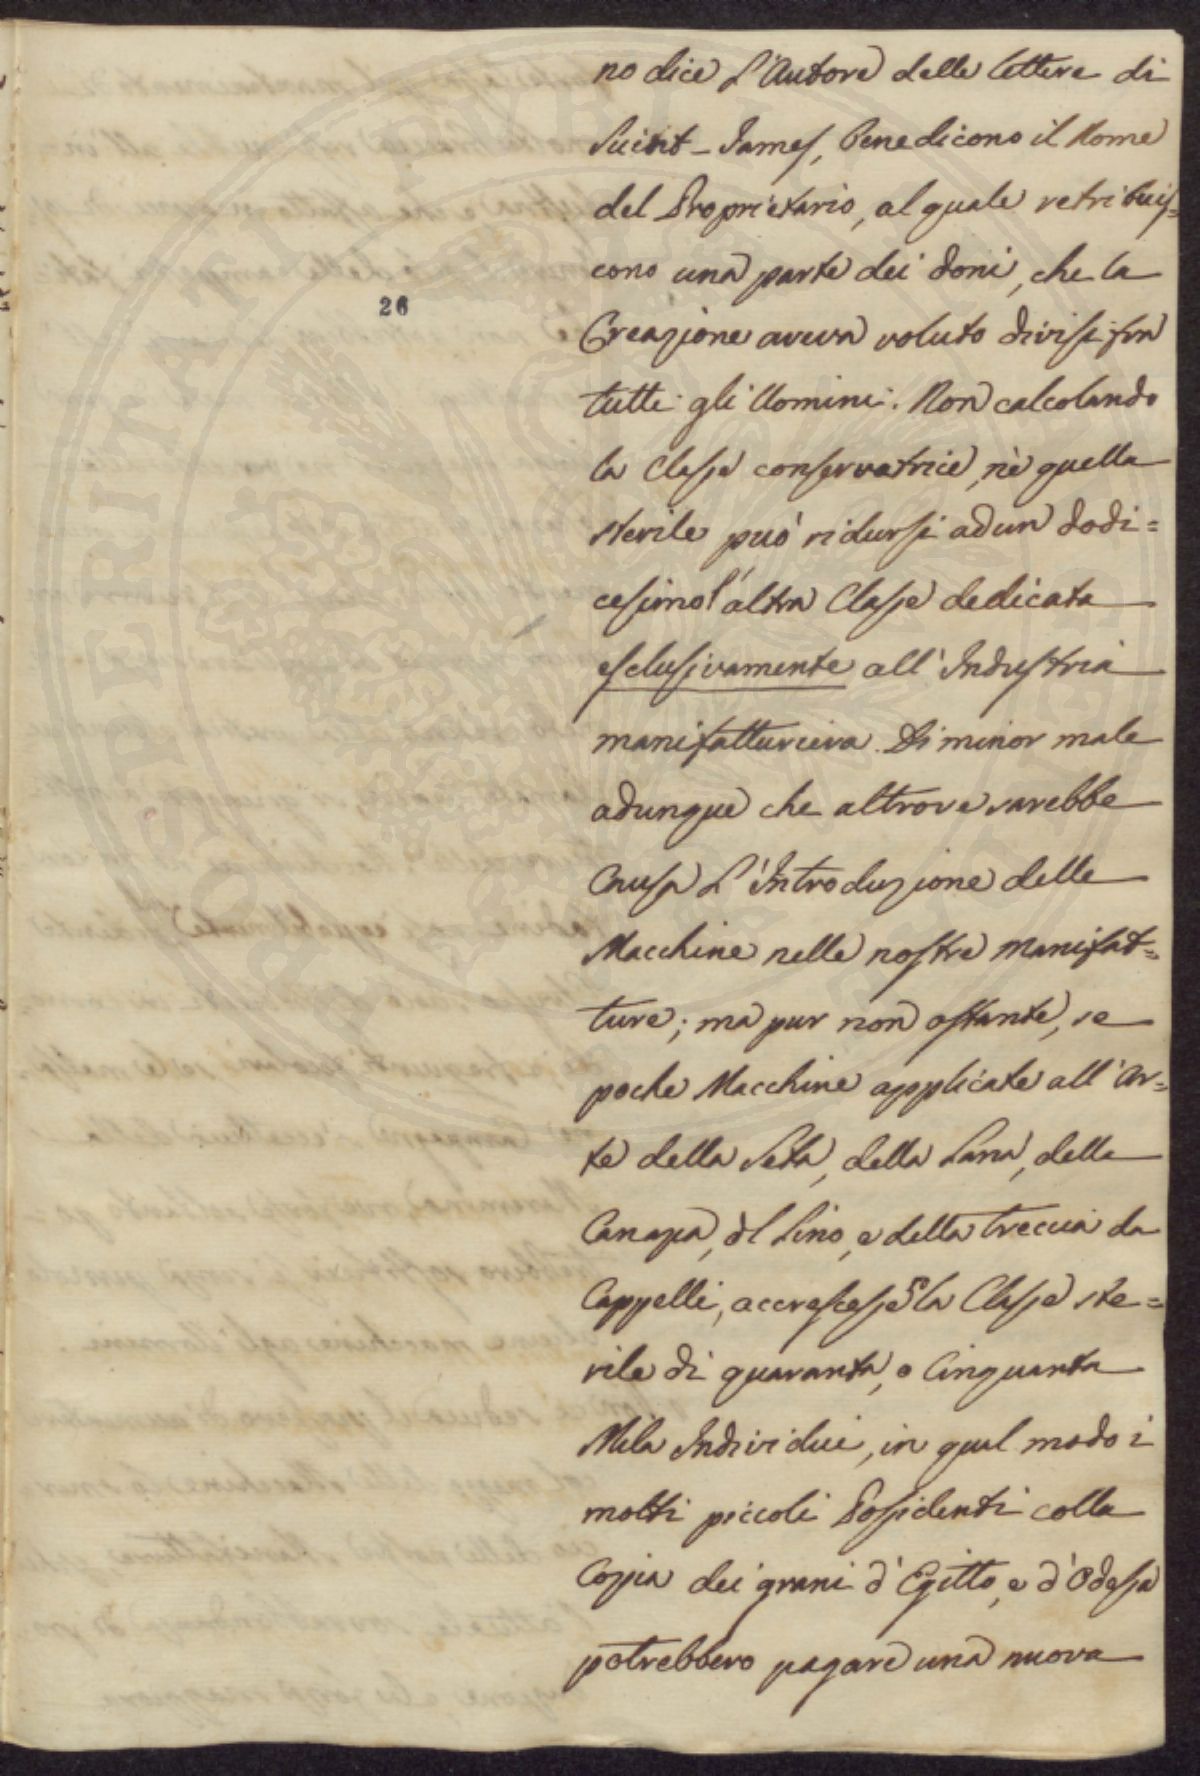 no dice L'Autore delle lettere di
Suint-James, benedicono il Nome
del Proprietario, al quale retribuis=
cono una parte dei doni, che la
Creazione aveva voluto divisi fra
tutti gli Uomini. Non calcolando
la Classe conservatrice, nè quella
sterile può ridursi ad un dodi=
cesimo l'altra Classe dedicata
esclusivamente all'Industria
manifatturiera. Di minor male
adunque che altrove sarebbe
Causa L'Introduzione delle
Macchine nelle nostre Manifat=
ture; ma pur non ostante, se
poche Macchine applicate all'Ar=
te della Seta, della Lana, della
Canapa, del Lino, e della treccia da
Cappelli, accrescesse la Classe ste=
rile di quaranta, o Cinquanta
Mila Individui, in qual modo i
molti piccoli Possidenti colla
Copia dei grani d'Egitto, e d'Odessa
potrebbero pagare una nuova
26
PROSPERITATI PVBLI